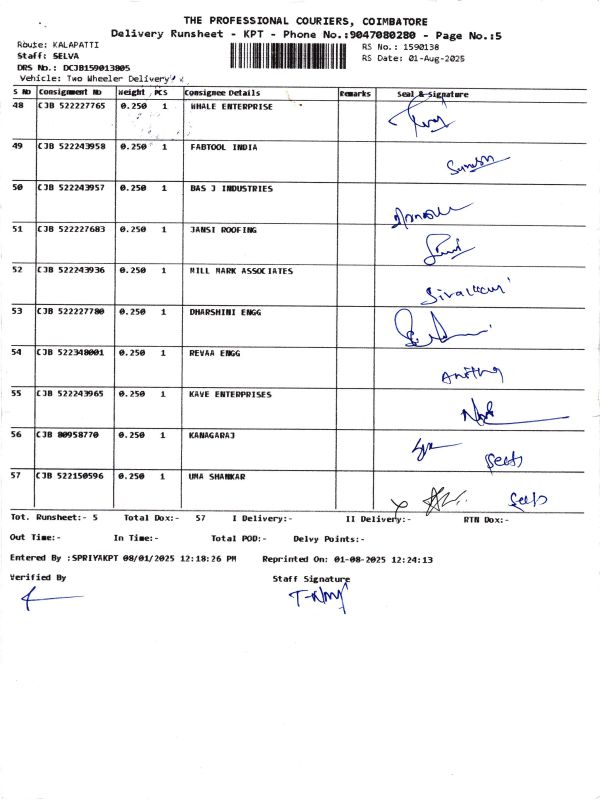 THE PROFESSIONAL COURIERS, COIMBATORE
Delivery Runsheet - KPT - Phone No.:9047080280 - Page No.:5
Route: KALAPATTI RS No.: 1590138
Staff: SELVA RS Date: 01-Aug-2025
DRS No.: DCJB159013805
Vehicle: Two Wheeler Delivery
S No Consignment No Weight PCS Consignee Details Remarks Seal & Signature
48 CJB 522227765 0.250 1 WHALE ENTERPRISE
49 CJB 522243958 0.250 1 FABTOOL INDIA Suresh
50 CJB 522243957 0.250 1 BAS J INDUSTRIES
51 CJB 522227683 0.250 1 JANSI ROOFING
52 CJB 522243936 0.250 1 MILL MARK ASSOCIATES
53 CJB 522227780 0.250 1 DHARSHINI ENGG
54 CJB 522348001 0.250 1 REVAA ENGG
55 CJB 522243965 0.250 1 KAVE ENTERPRISES
56 CJB 80958770 0.250 1 KANAGARAJ
57 CJB 522150596 0.250 1 UMA SHANKAR
Tot. Runsheet:- 5 Total Dox:- 57 I Delivery:- II Delivery:- RTN Dox:-
Out Time:- In Time:- Total POD:- Delvy Points:-
Entered By :SPRIYAKPT 08/01/2025 12:18:26 PM Reprinted On: 01-08-2025 12:24:13
Verified By Staff Signature